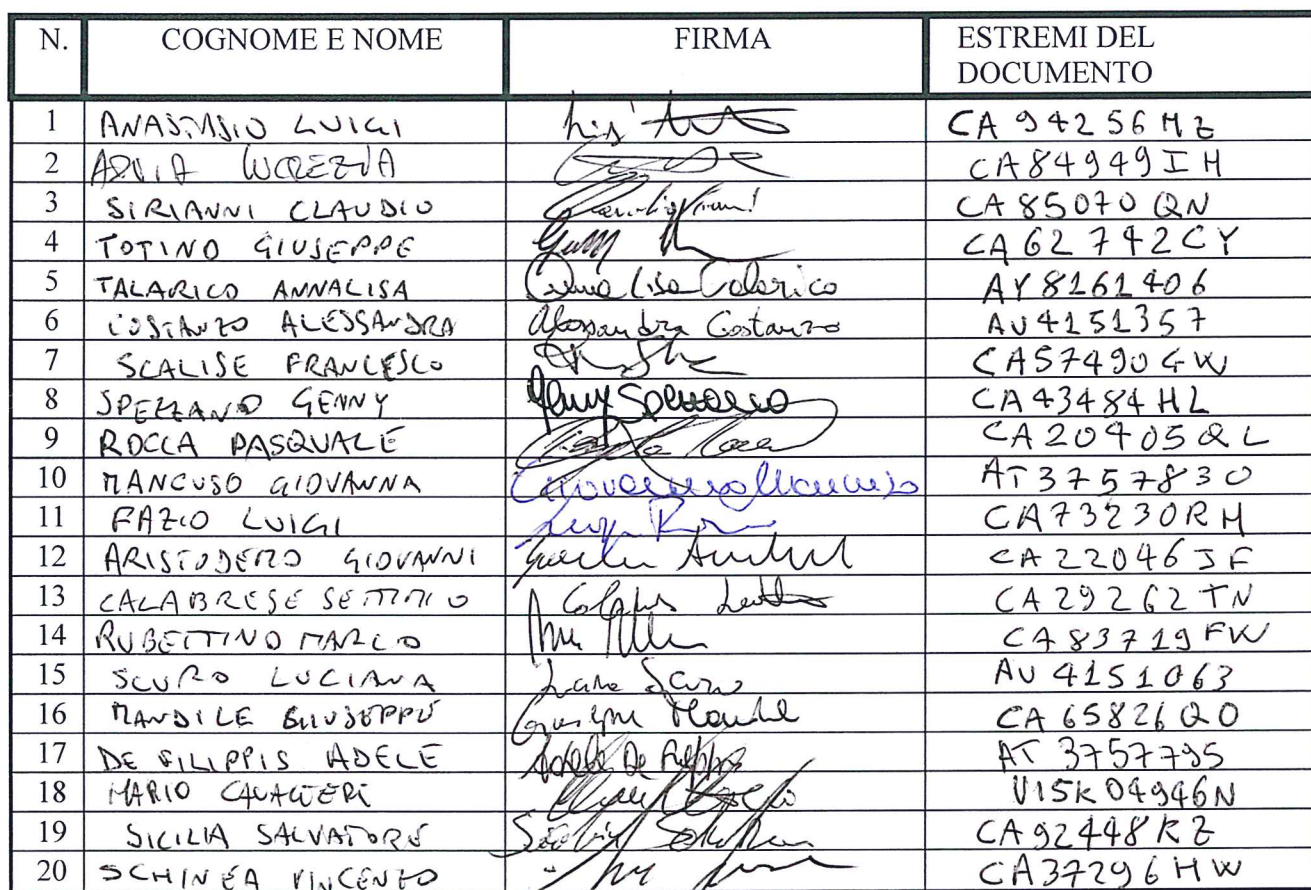 N. COGNOME E NOME FIRMA ESTREMI DEL DOCUMENTO
1 ANASTASIO LUIGI CA 94256 MZ
2 ADLIA LUCREZIA CA84949IH
3 SIRIANNI CLAUDIO CA 85070 QN
4 TOTINO GIUSEPPE CA 62742CY
5 TALARICO ANNALISA Anna Lisa Talarico AY 8161406
6 COSTANZO ALESSANDRA Alessandra Costanzo AU4151357
7 SCALISE FRANCESCO CA57490GW
8 SPEZZANO GENNY Genny Spezzano CA43484HL
9 ROCCA PASQUALE CA20405QL
10 MANCUSO GIOVANNA Giovanna Mancuso AT3757830
11 FAZIO LUIGI CA73230RM
12 ARISTODEMO GIOVANNI CA22046JF
13 CALABRESE SETTIMIO CA29262TN
14 RUBETTINO MARCO CA83719FW
15 SCURO LUCIANA AU 4151063
16 MANDILE GIUSEPPE CA 65826QO
17 DE FILIPPIS ADELE Adele De Filippis AT 3757795
18 MARIO CAVALIERI U15K04946N
19 SICILIA SALVATORE CA92448KZ
20 SCHINEA VINCENZO CA37296HW